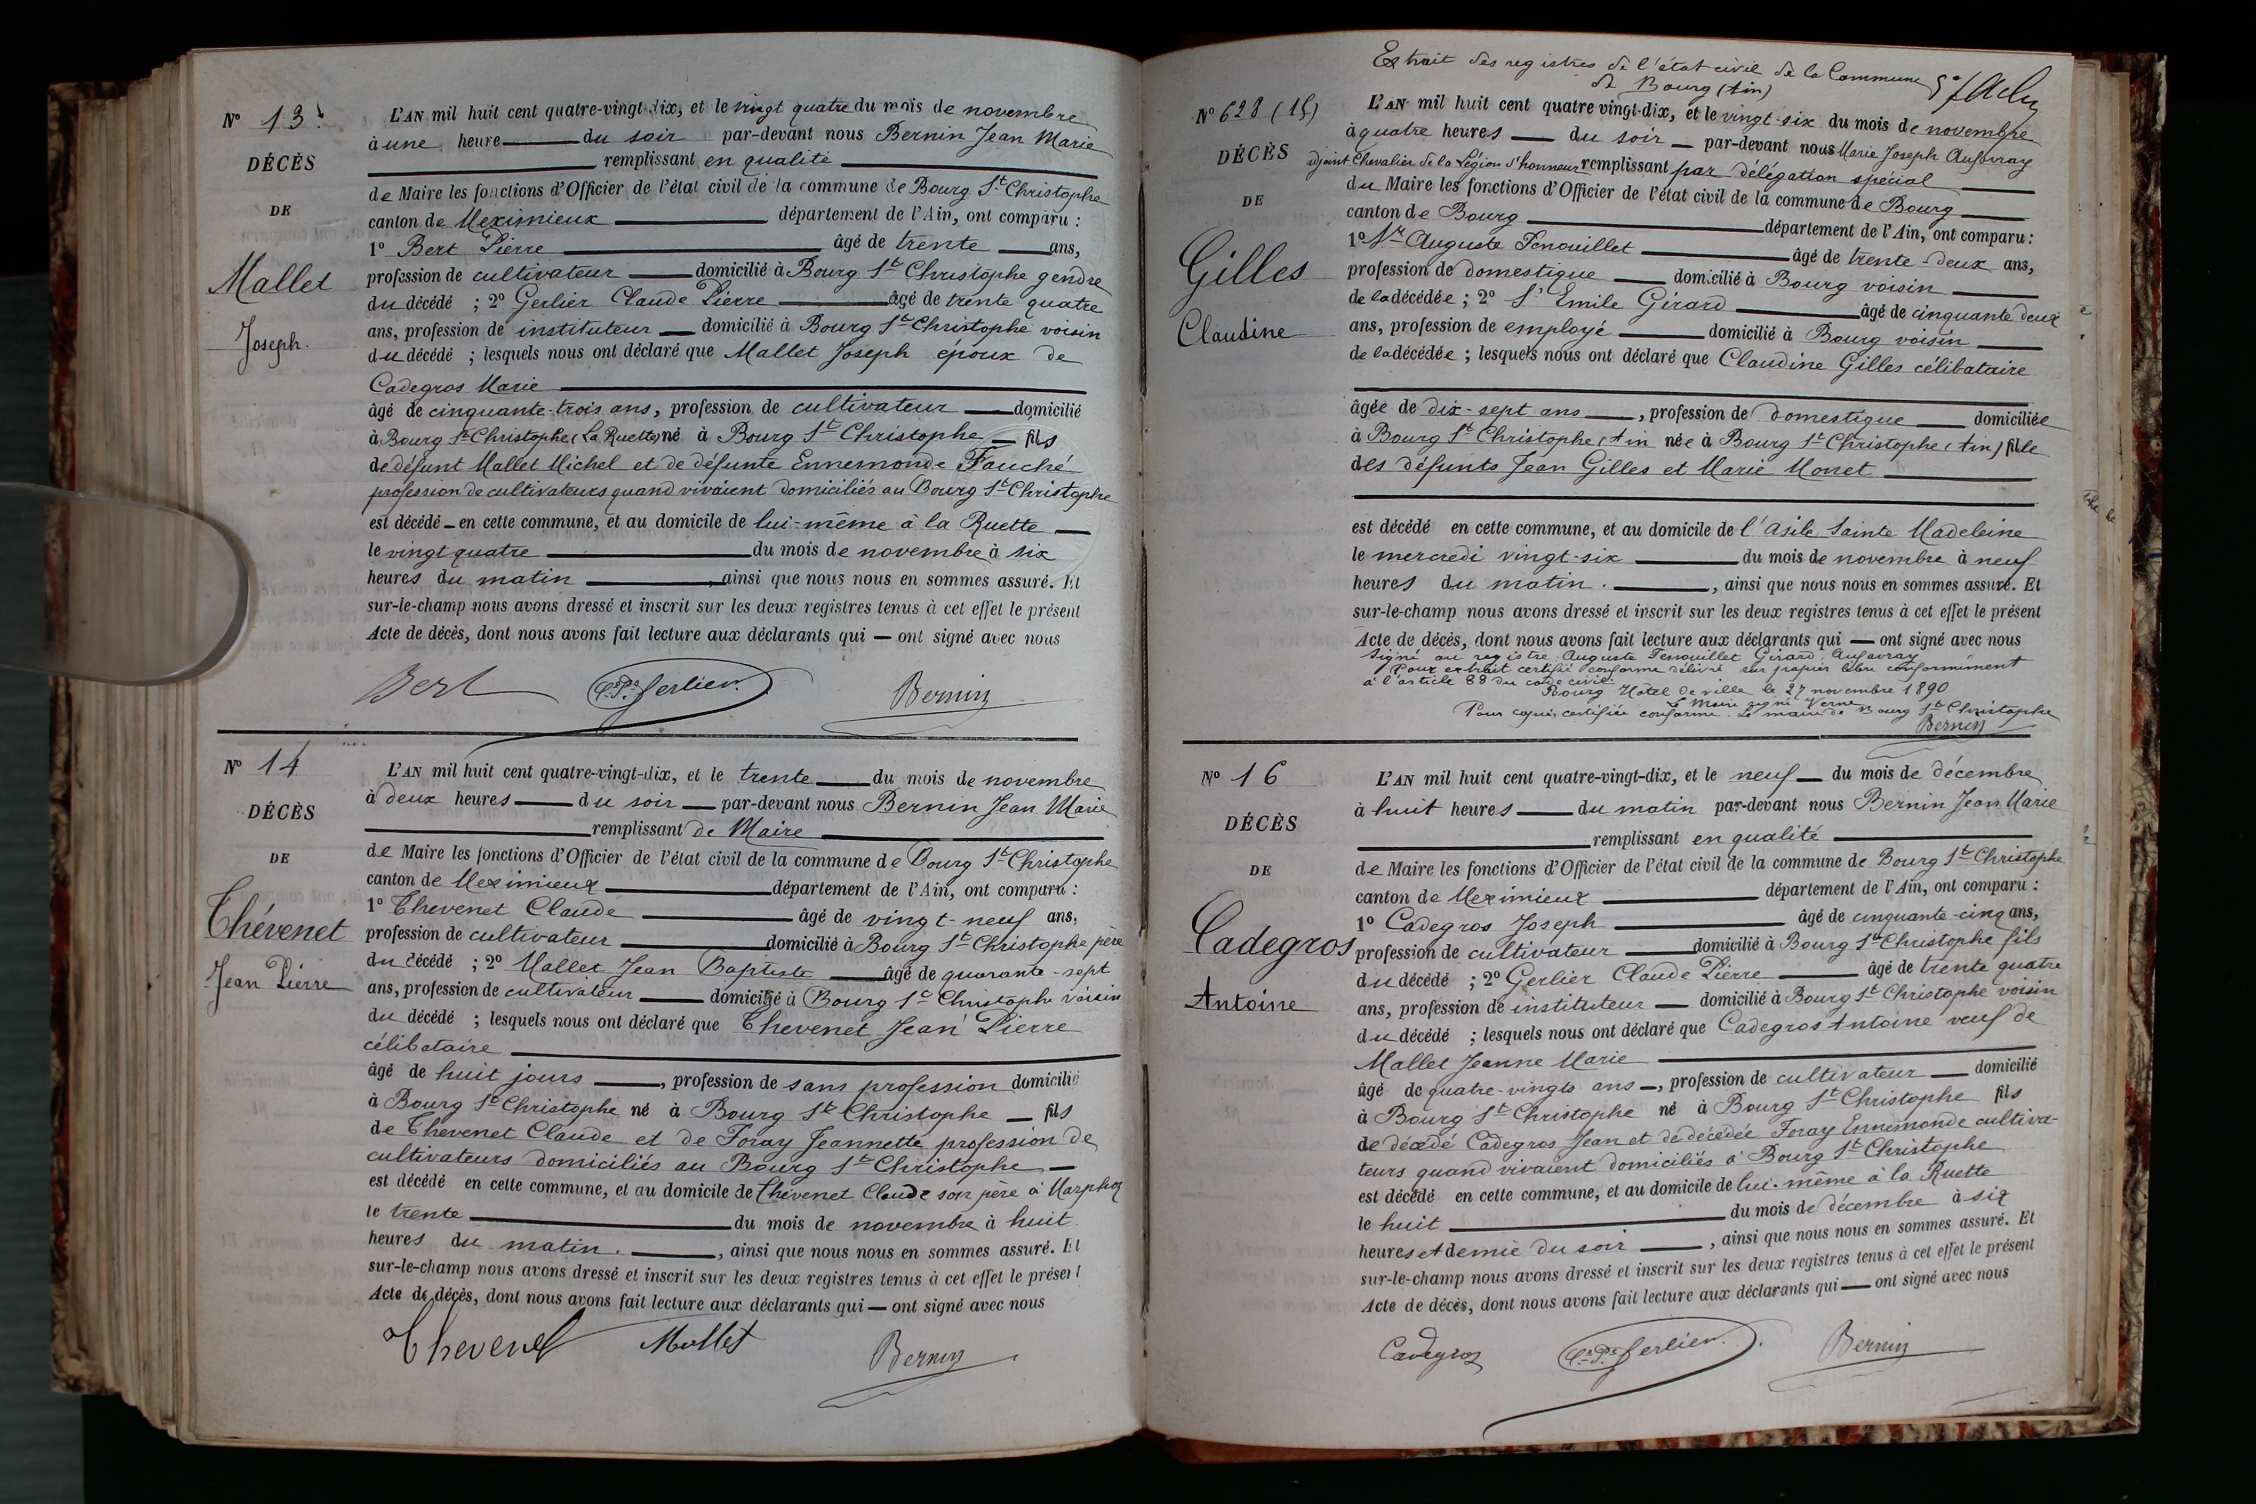 Nº 13
DÉCÈS
DE
Mallet
Joseph.
L'AN mil huit cent quatre-vingt-dix, et le vingt quatre du mois de novembre
à une heure du soir par-devant nous Bernin Jean Marie
remplissant en qualité
de Maire les fonctions d'Officier de l'état civil de la commune de Bourg St Christophe
canton de Meximieux département de l'Ain, ont comparu :
1º Bert Pierre âgé de trente ans,
profession de cultivateur domicilié à Bourg St Christophe gendre
du décédé ; 2º Gerlier Claude Pierre âgé de trente quatre
ans, profession de instituteur domicilié à Bourg St Christophe voisin
du décédé ; lesquels nous ont déclaré que Mallet Joseph époux de
Cadegros Marie
âgé de cinquante-trois ans, profession de cultivateur domicilié
à Bourg St Christophe (La Ruette) né à Bourg St Christophe fils
de défunt Mallet Michel et de défunte Ennemonde Fauché
profession de cultivateurs quand vivaient domiciliés au Bourg St Christophe
est décédé en cette commune, et au domicile de lui-même à la Ruette
le vingt quatre du mois de novembre à six
heures du matin, ainsi que nous nous en sommes assuré. Et
sur-le-champ nous avons dressé et inscrit sur les deux registres tenus à cet effet le présent
Acte de décès, dont nous avons fait lecture aux déclarants qui ont signé avec nous
Bert Cde Pre Gerlier. Bernin
Nº 14
DÉCÈS
DE
Thévenet
Jean Pierre
L'AN mil huit cent quatre-vingt-dix, et le trente du mois de novembre
à deux heures du soir par-devant nous Bernin Jean Marie
remplissant de Maire
de Maire les fonctions d'Officier de l'état civil de la commune de Bourg St Christophe
canton de Meximieux département de l'Ain, ont comparu :
1º Thevenet Claude âgé de vingt-neuf ans,
profession de cultivateur domicilié à Bourg St Christophe père
du décédé ; 2º Mallet Jean Baptiste âgé de quarante-sept
ans, profession de cultivateur domicilié à Bourg St Christophe voisin
du décédé ; lesquels nous ont déclaré que Thevenet Jean Pierre
célibataire
âgé de huit jours, profession de sans profession domicilié
à Bourg St Christophe né à Bourg St Christophe fils
de Thevenet Claude et de Foray Jeannette profession de
cultivateurs domiciliés au Bourg St Christophe
est décédé en cette commune, et au domicile de Thévenet Claude son père à Marphoz
le trente du mois de novembre à huit
heures du matin, ainsi que nous nous en sommes assuré. Et
sur-le-champ nous avons dressé et inscrit sur les deux registres tenus à cet effet le présent
Acte de décès, dont nous avons fait lecture aux déclarants qui ont signé avec nous
Thevenet Mallet Bernin
Extrait des registres de l'état civil de la Commune
de Bourg (Ain)
Nº 628 (15)
DÉCÈS
DE
Gilles
Claudine
L'AN mil huit cent quatre vingt-dix, et le vingt-six du mois de novembre
à quatre heures du soir par-devant nous Marie Joseph Aufavray
adjoint Chevalier de la Légion d'honneur remplissant par délégation spécial
du Maire les fonctions d'Officier de l'état civil de la commune de Bourg
canton de Bourg département de l'Ain, ont comparu :
1º Mr Auguste Fenouillet âgé de trente-deux ans,
profession de domestique domicilié à Bourg voisin
de la décédée ; 2º Sr Emile Girard âgé de cinquante deux
ans, profession de employé domicilié à Bourg voisin
de la décédée ; lesquels nous ont déclaré que Claudine Gilles célibataire
âgée de dix-sept ans, profession de domestique domiciliée
à Bourg St Christophe (Ain née à Bourg St Christophe (Ain) fille
des défunts Jean Gilles et Marie Monet
est décédé en cette commune, et au domicile de l'asile Sainte Madeleine
le mercredi vingt-six du mois de novembre à neuf
heures du matin., ainsi que nous nous en sommes assuré. Et
sur-le-champ nous avons dressé et inscrit sur les deux registres tenus à cet effet le présent
Acte de décès, dont nous avons fait lecture aux déclarants qui ont signé avec nous
Signé au registre Auguste Fenouillet Girard Aufavray
Pour extrait certifié conforme délivré sur papier libre conformément
à l'article 88 du code civil.
Bourg Hôtel de ville le 27 novembre 1890
Le Maire signé Verne
Pour copie certifiée conforme. Le maire de Bourg St Christophe
Bernin
Nº 16
DÉCÈS
DE
Cadegros
Antoine
L'AN mil huit cent quatre-vingt-dix, et le neuf du mois de décembre
à huit heures du matin par-devant nous Bernin Jean Marie
remplissant en qualité
de Maire les fonctions d'Officier de l'état civil de la commune de Bourg St Christophe
canton de Meximieux département de l'Ain, ont comparu :
1º Cadegros Joseph âgé de cinquante-cinq ans,
profession de cultivateur domicilié à Bourg St Christophe fils
du décédé ; 2º Gerlier Claude Pierre âgé de trente quatre
ans, profession de instituteur domicilié à Bourg St Christophe voisin
du décédé ; lesquels nous ont déclaré que Cadegros Antoine veuf de
Mallet Jeanne Marie
âgé de quatre-vingts ans, profession de cultivateur domicilié
à Bourg St Christophe né à Bourg St Christophe fils
de décédé Cadegros Jean et de décédée Foray Ennemonde cultiva-
teurs quand vivaient domiciliés à Bourg St Christophe
est décédé en cette commune, et au domicile de lui-même à la Ruette
le huit du mois de décembre à six
heures et demie du soir, ainsi que nous nous en sommes assuré. Et
sur-le-champ nous avons dressé et inscrit sur les deux registres tenus à cet effet le présent
Acte de décès, dont nous avons fait lecture aux déclarants qui ont signé avec nous
Cadegros Cde Pre Gerlier. Bernin